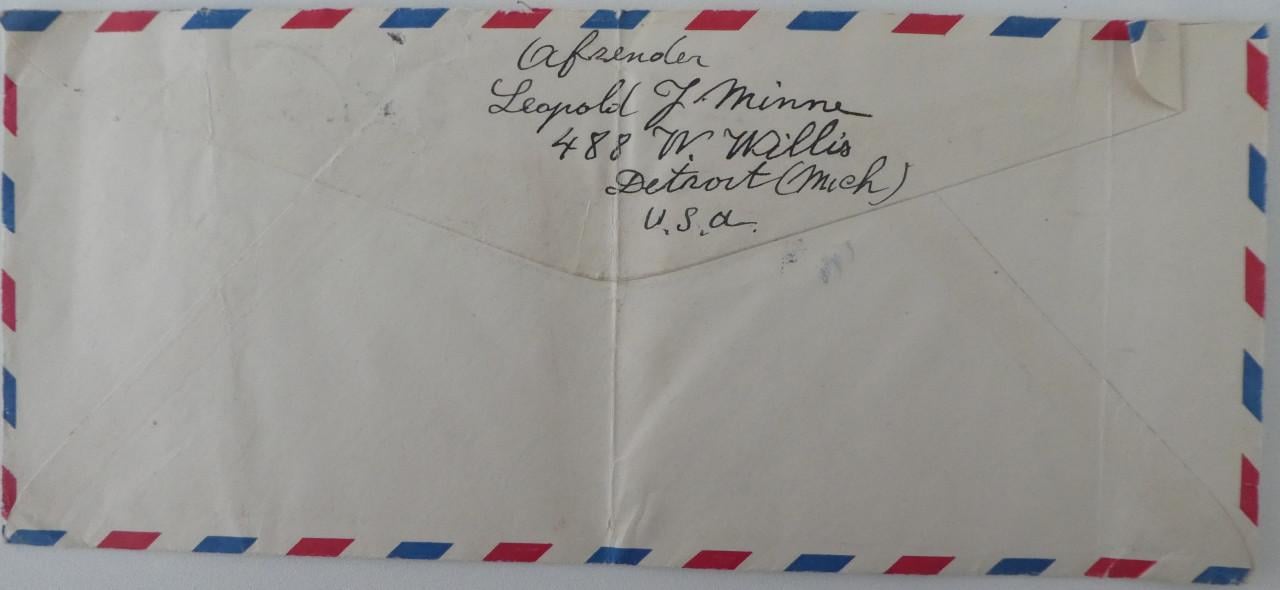 Afzender
Leopold J. Minne
488 W. Willis
Detroit (Mich)
U.S.A.